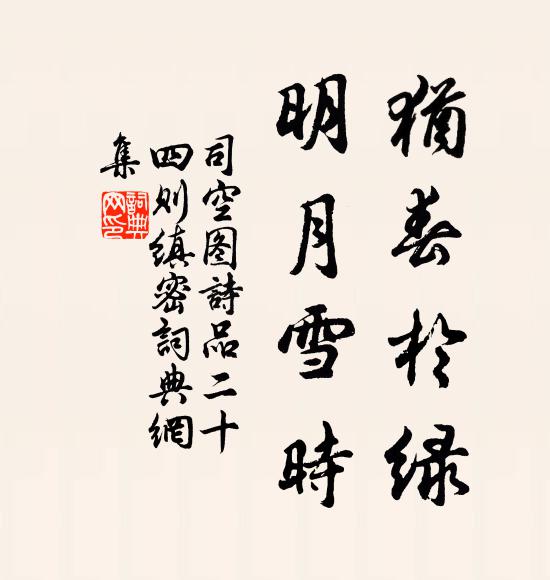 猶春於綠
明月雪時
司空图詩品二十
四则縝密詞典網
集
詞典
网印